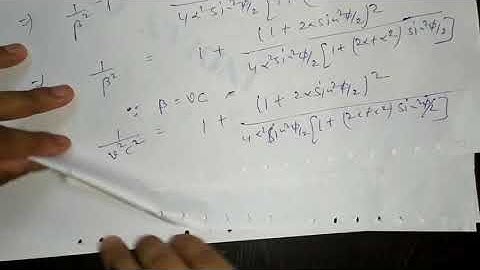 =) 1/β² - 1 = 4α²sin²φ/2 [1 + (2α+α²) sin²φ/2]
=) 1/β² = 1 + (1 + 2αsin²φ/2)² / 4α²sin²φ/2 [1 + (2α+α²) sin²φ/2]
∵ β = vc
1/v²c² = 1 + (1 + 2αsin²φ/2)² / 4α²sin²φ/2 [1 + (2α+α²) sin²φ/2]